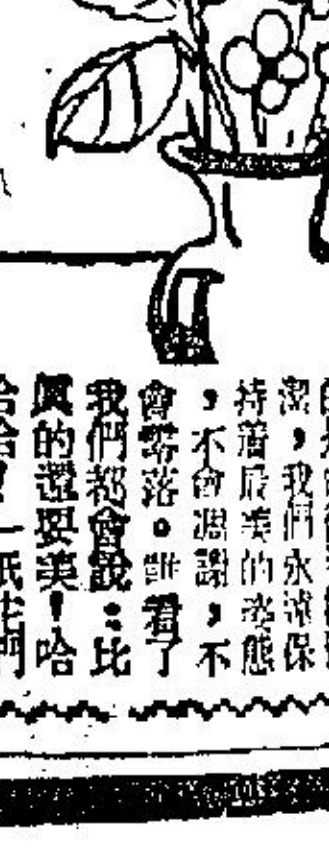 潔，我們永遠保
持着最美的姿態
，不會凋謝，不
會零落。誰看了
我們都會說：比
真的還要美！哈
哈哈！—紙花們